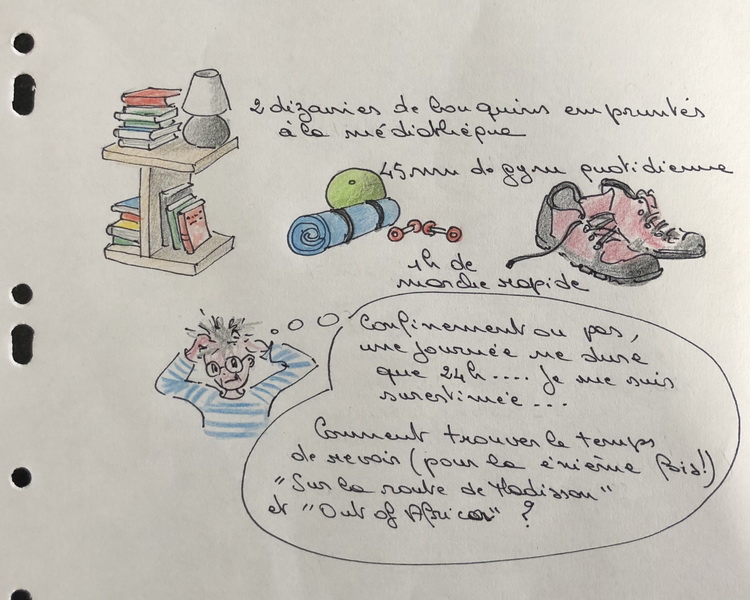 2 dizaines de bouquins empruntés
à la médiathèque
45mn de gym quotidienne
1h de
marche rapide
Confinement ou pas,
une journée ne dure
que 24h.... Je me suis
surestimée...
Comment trouver le temps
de revoir (pour la énième fois!)
"Sur la route de Madisson"
et "Out of Africa" ?